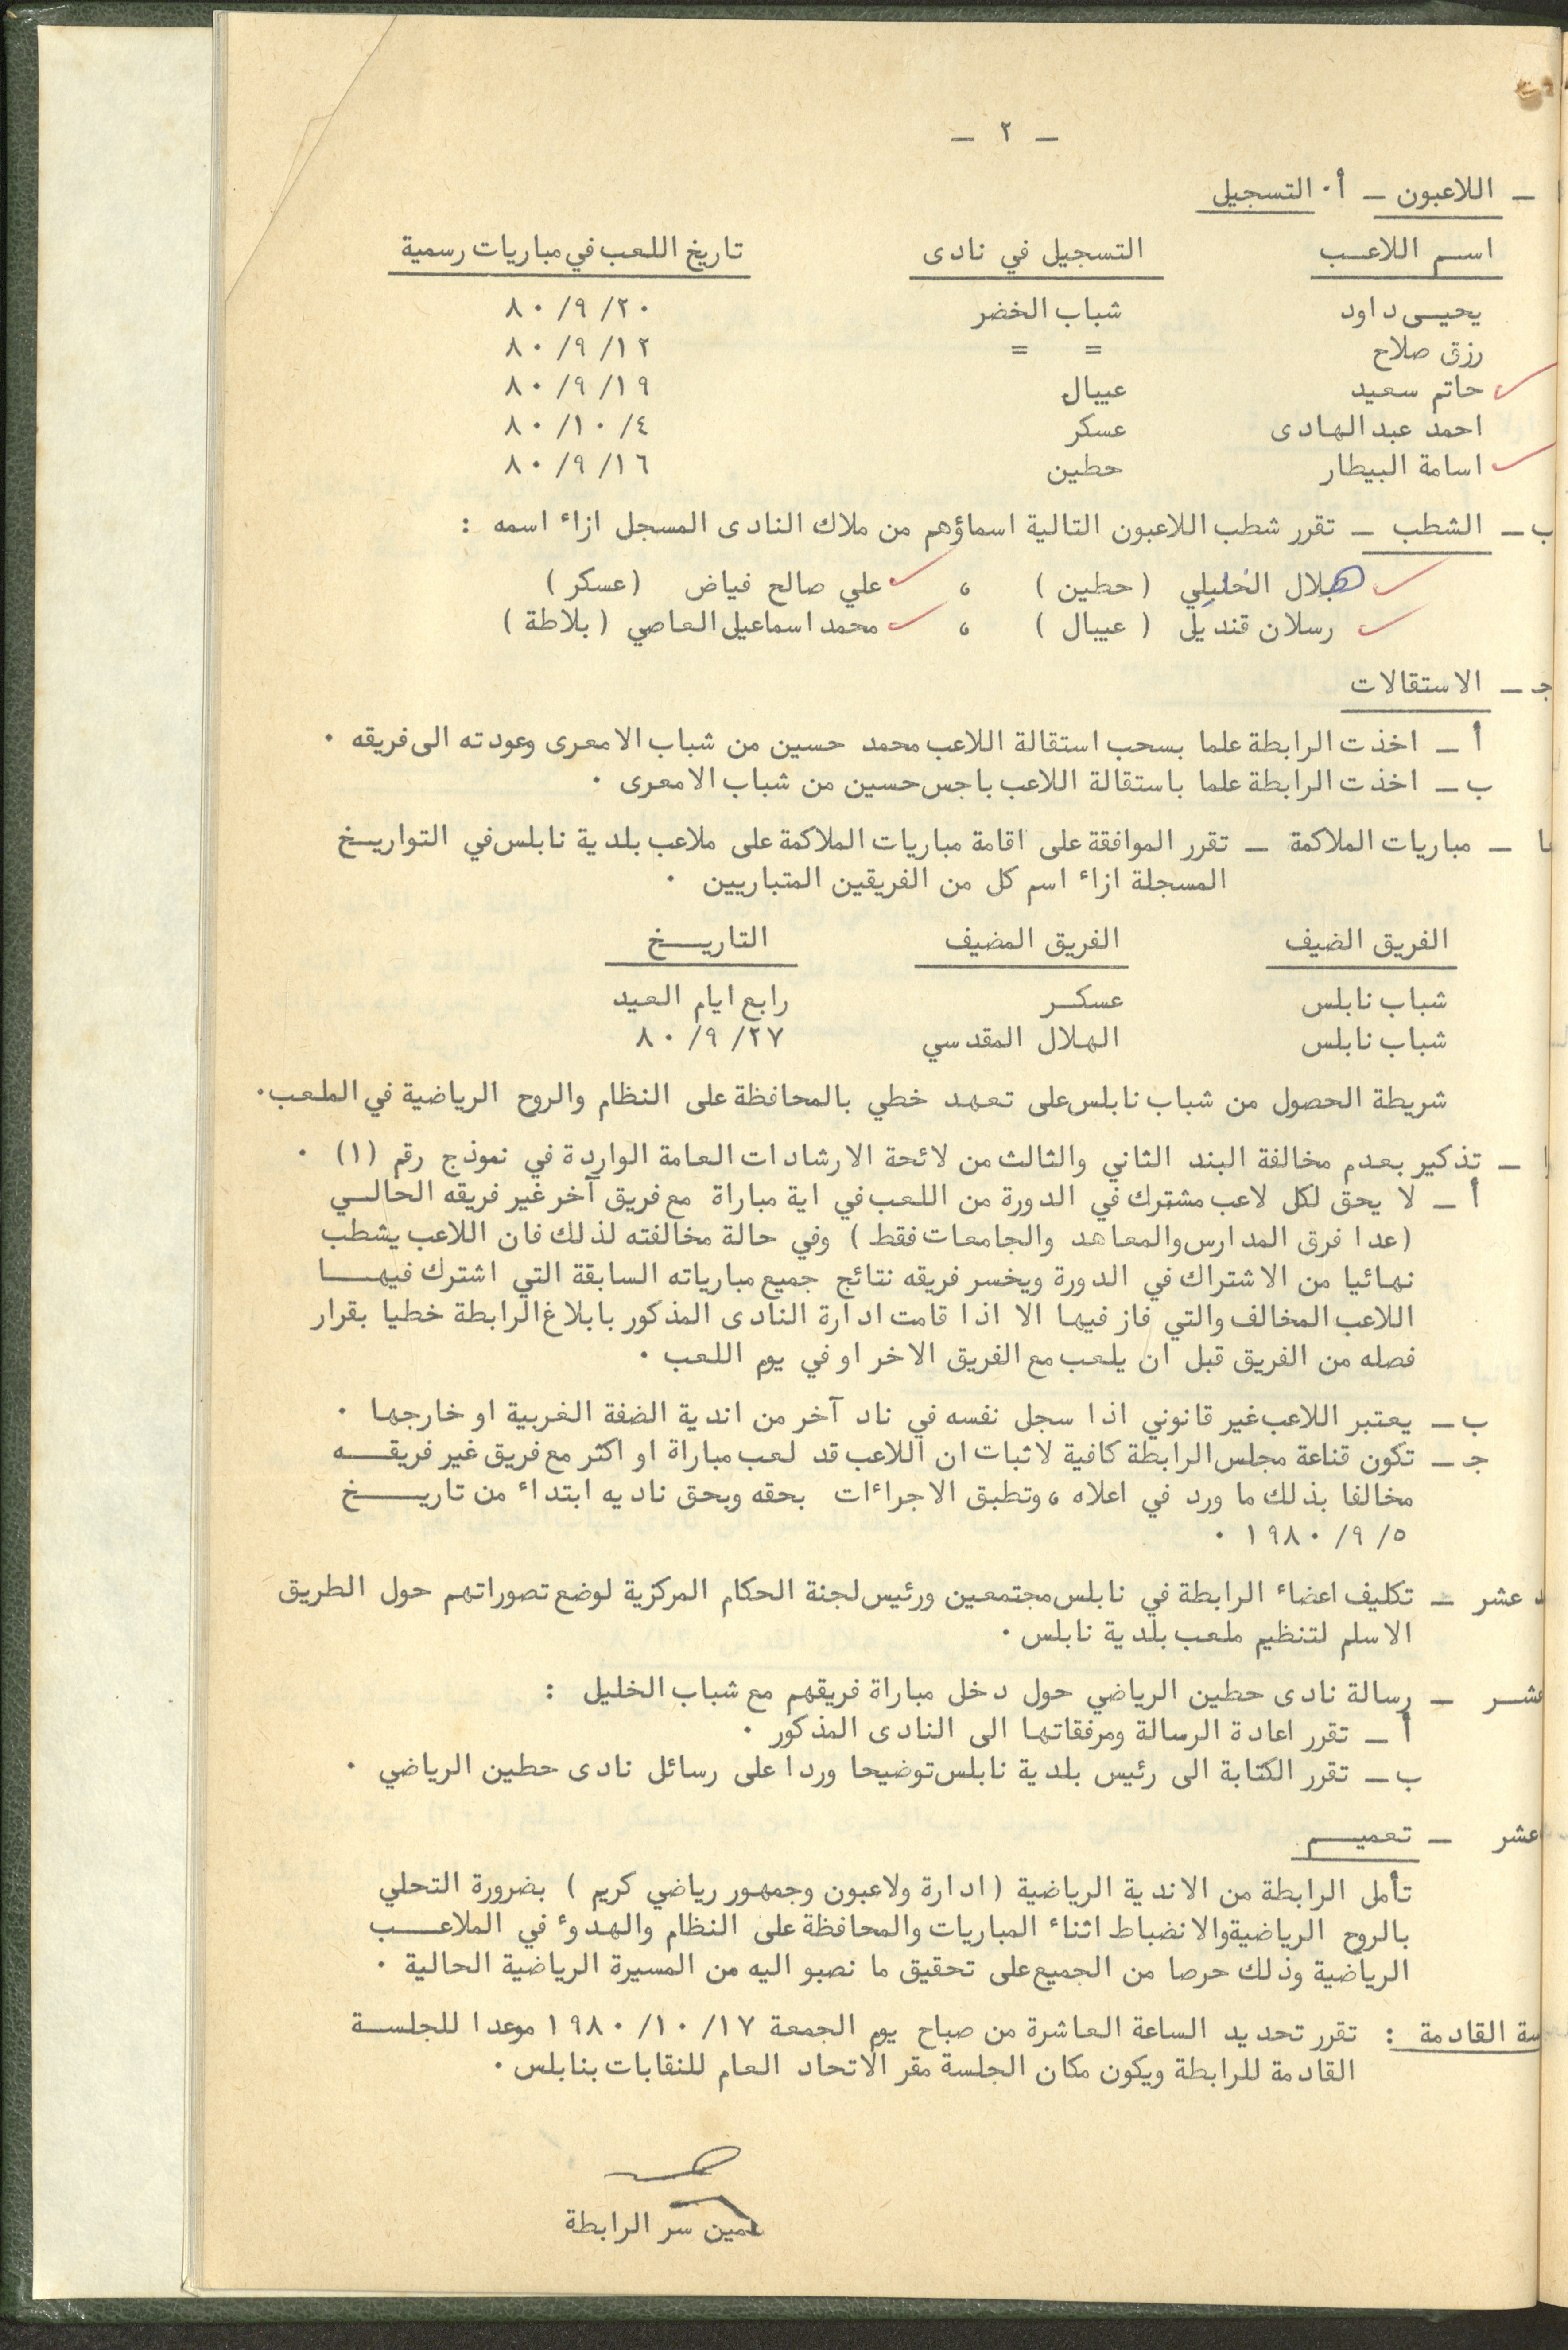 - ٢ -
- اللاعبون - أ. التسجيل
اسم اللاعب التسجيل في نادى تاريخ اللعب في مباريات رسمية
يحيى داود شباب الخضر ٢٠/٩/٨٠
رزق صلاح = = ١٢/٩/٨٠
حاتم سعيد عيبال ١٩/٩/٨٠
احمد عبد الهادى عسكر ٤/١٠/٨٠
اسامة البيطار حطين ١٦/٩/٨٠
ب - الشطب - تقرر شطب اللاعبون التالية اسماؤهم من ملاك النادى المسجل ازاء اسمه :
هلال الخليلي (حطين) ، علي صالح فياض (عسكر)
رسلان قنديل (عيبال) ، محمد اسماعيل العاصي (بلاطة)
جـ - الاستقالات
أ - اخذت الرابطة علما بسحب استقالة اللاعب محمد حسين من شباب الامعرى وعودته الى فريقه .
ب - اخذت الرابطة علما باستقالة اللاعب باجس حسين من شباب الامعرى .
- مباريات الملاكمة - تقرر الموافقة على اقامة مباريات الملاكمة على ملاعب بلدية نابلس في التواريخ
المسجلة ازاء اسم كل من الفريقين المتباريين .
الفريق الضيف الفريق المضيف التاريخ
شباب نابلس عسكر رابع ايام العيد
شباب نابلس الهلال المقدسي ٢٧/٩/٨٠
شريطة الحصول من شباب نابلس على تعهد خطي بالمحافظة على النظام والروح الرياضية في الملعب.
- تذكير بعدم مخالفة البند الثاني والثالث من لائحة الارشادات العامة الواردة في نموذج رقم (١) .
أ - لا يحق لكل لاعب مشترك في الدورة من اللعب في اية مباراة مع فريق آخر غير فريقه الحالي
(عدا فرق المدارس والمعاهد والجامعات فقط) وفي حالة مخالفته لذلك فان اللاعب يشطب
نهائيا من الاشتراك في الدورة ويخسر فريقه نتائج جميع مبارياته السابقة التي اشترك فيها
اللاعب المخالف والتي فاز فيها الا اذا قامت ادارة النادى المذكور بابلاغ الرابطة خطيا بقرار
فصله من الفريق قبل ان يلعب مع الفريق الاخر او في يوم اللعب .
ب - يعتبر اللاعب غير قانوني اذا سجل نفسه في ناد آخر من اندية الضفة الغربية او خارجها .
جـ - تكون قناعة مجلس الرابطة كافية لاثبات ان اللاعب قد لعب مباراة او اكثر مع فريق غير فريقه
مخالفا بذلك ما ورد في اعلاه ، وتطبق الاجراءات بحقه وبحق ناديه ابتداء من تاريخ
٥/٩/١٩٨٠ .
عشر - تكليف اعضاء الرابطة في نابلس مجتمعين ورئيس لجنة الحكام المركزية لوضع تصوراتهم حول الطريق
الاسلم لتنظيم ملعب بلدية نابلس .
عشر - رسالة نادى حطين الرياضي حول دخل مباراة فريقهم مع شباب الخليل :
أ - تقرر اعادة الرسالة ومرفقاتها الى النادى المذكور .
ب - تقرر الكتابة الى رئيس بلدية نابلس توضيحا وردا على رسائل نادى حطين الرياضي .
عشر - تعميم
تأمل الرابطة من الاندية الرياضية (ادارة ولاعبون وجمهور رياضي كريم) بضرورة التحلي
بالروح الرياضية والانضباط اثناء المباريات والمحافظة على النظام والهدوء في الملاعب
الرياضية وذلك حرصا من الجميع على تحقيق ما نصبو اليه من المسيرة الرياضية الحالية .
سة القادمة : تقرر تحديد الساعة العاشرة من صباح يوم الجمعة ١٧/١٠/١٩٨٠ موعدا للجلسة
القادمة للرابطة ويكون مكان الجلسة مقر الاتحاد العام للنقابات بنابلس .
امين سر الرابطة